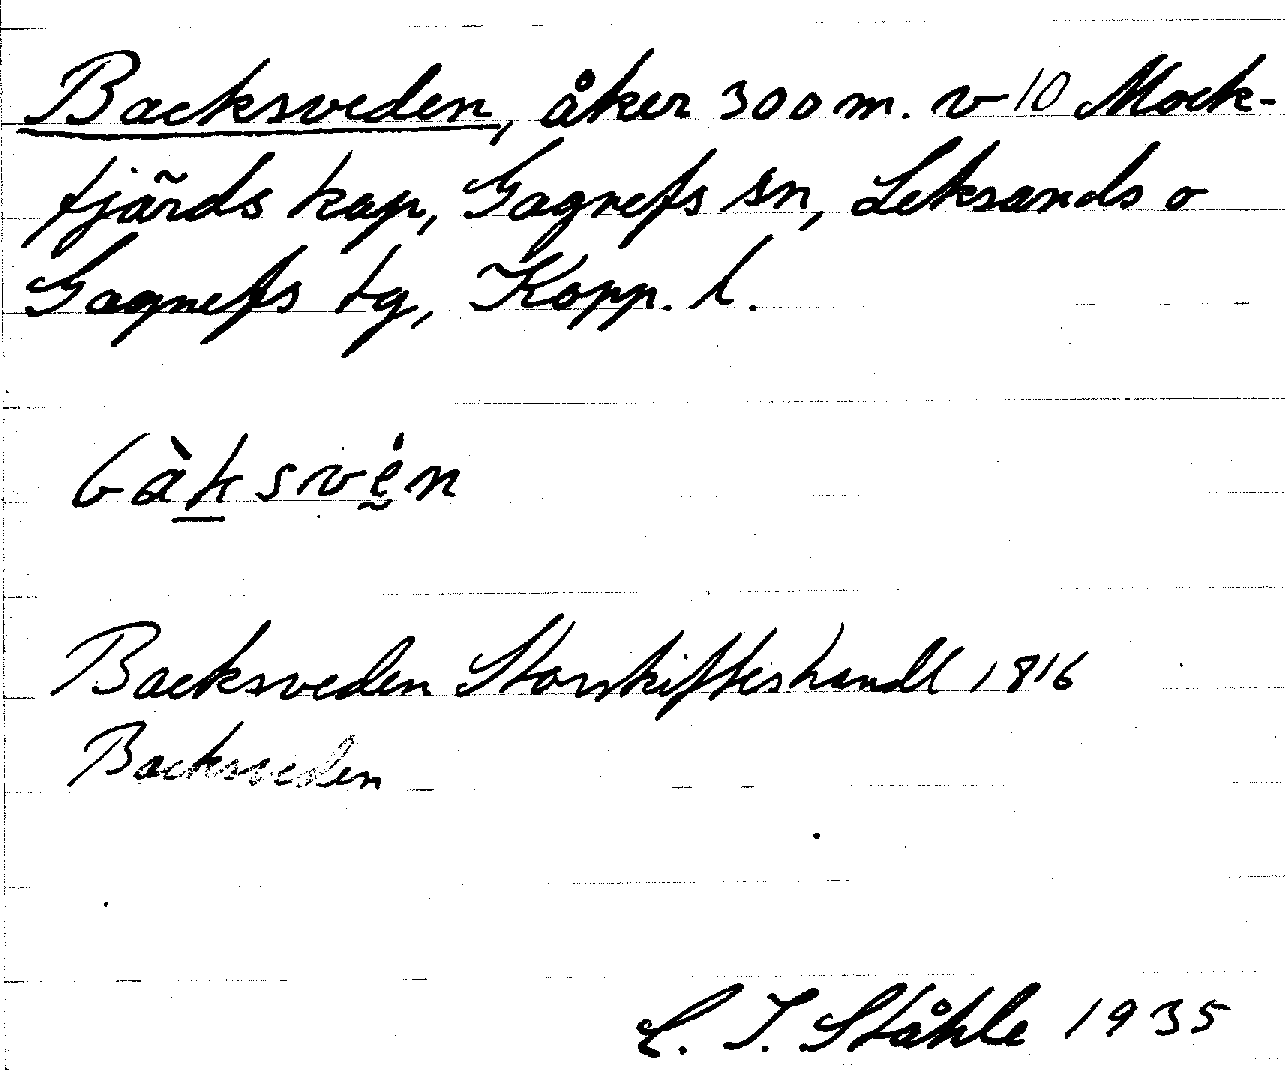 Backsveden, åker 300 m. v 10 Mock-
fjärds kap, Gagnefs sn, Leksands o
Gagnefs tg, Kopp. l.
bàksvė̬n
Backsveden Storskifteshandl 1816
Backsveden
C. I. Ståhle 1935